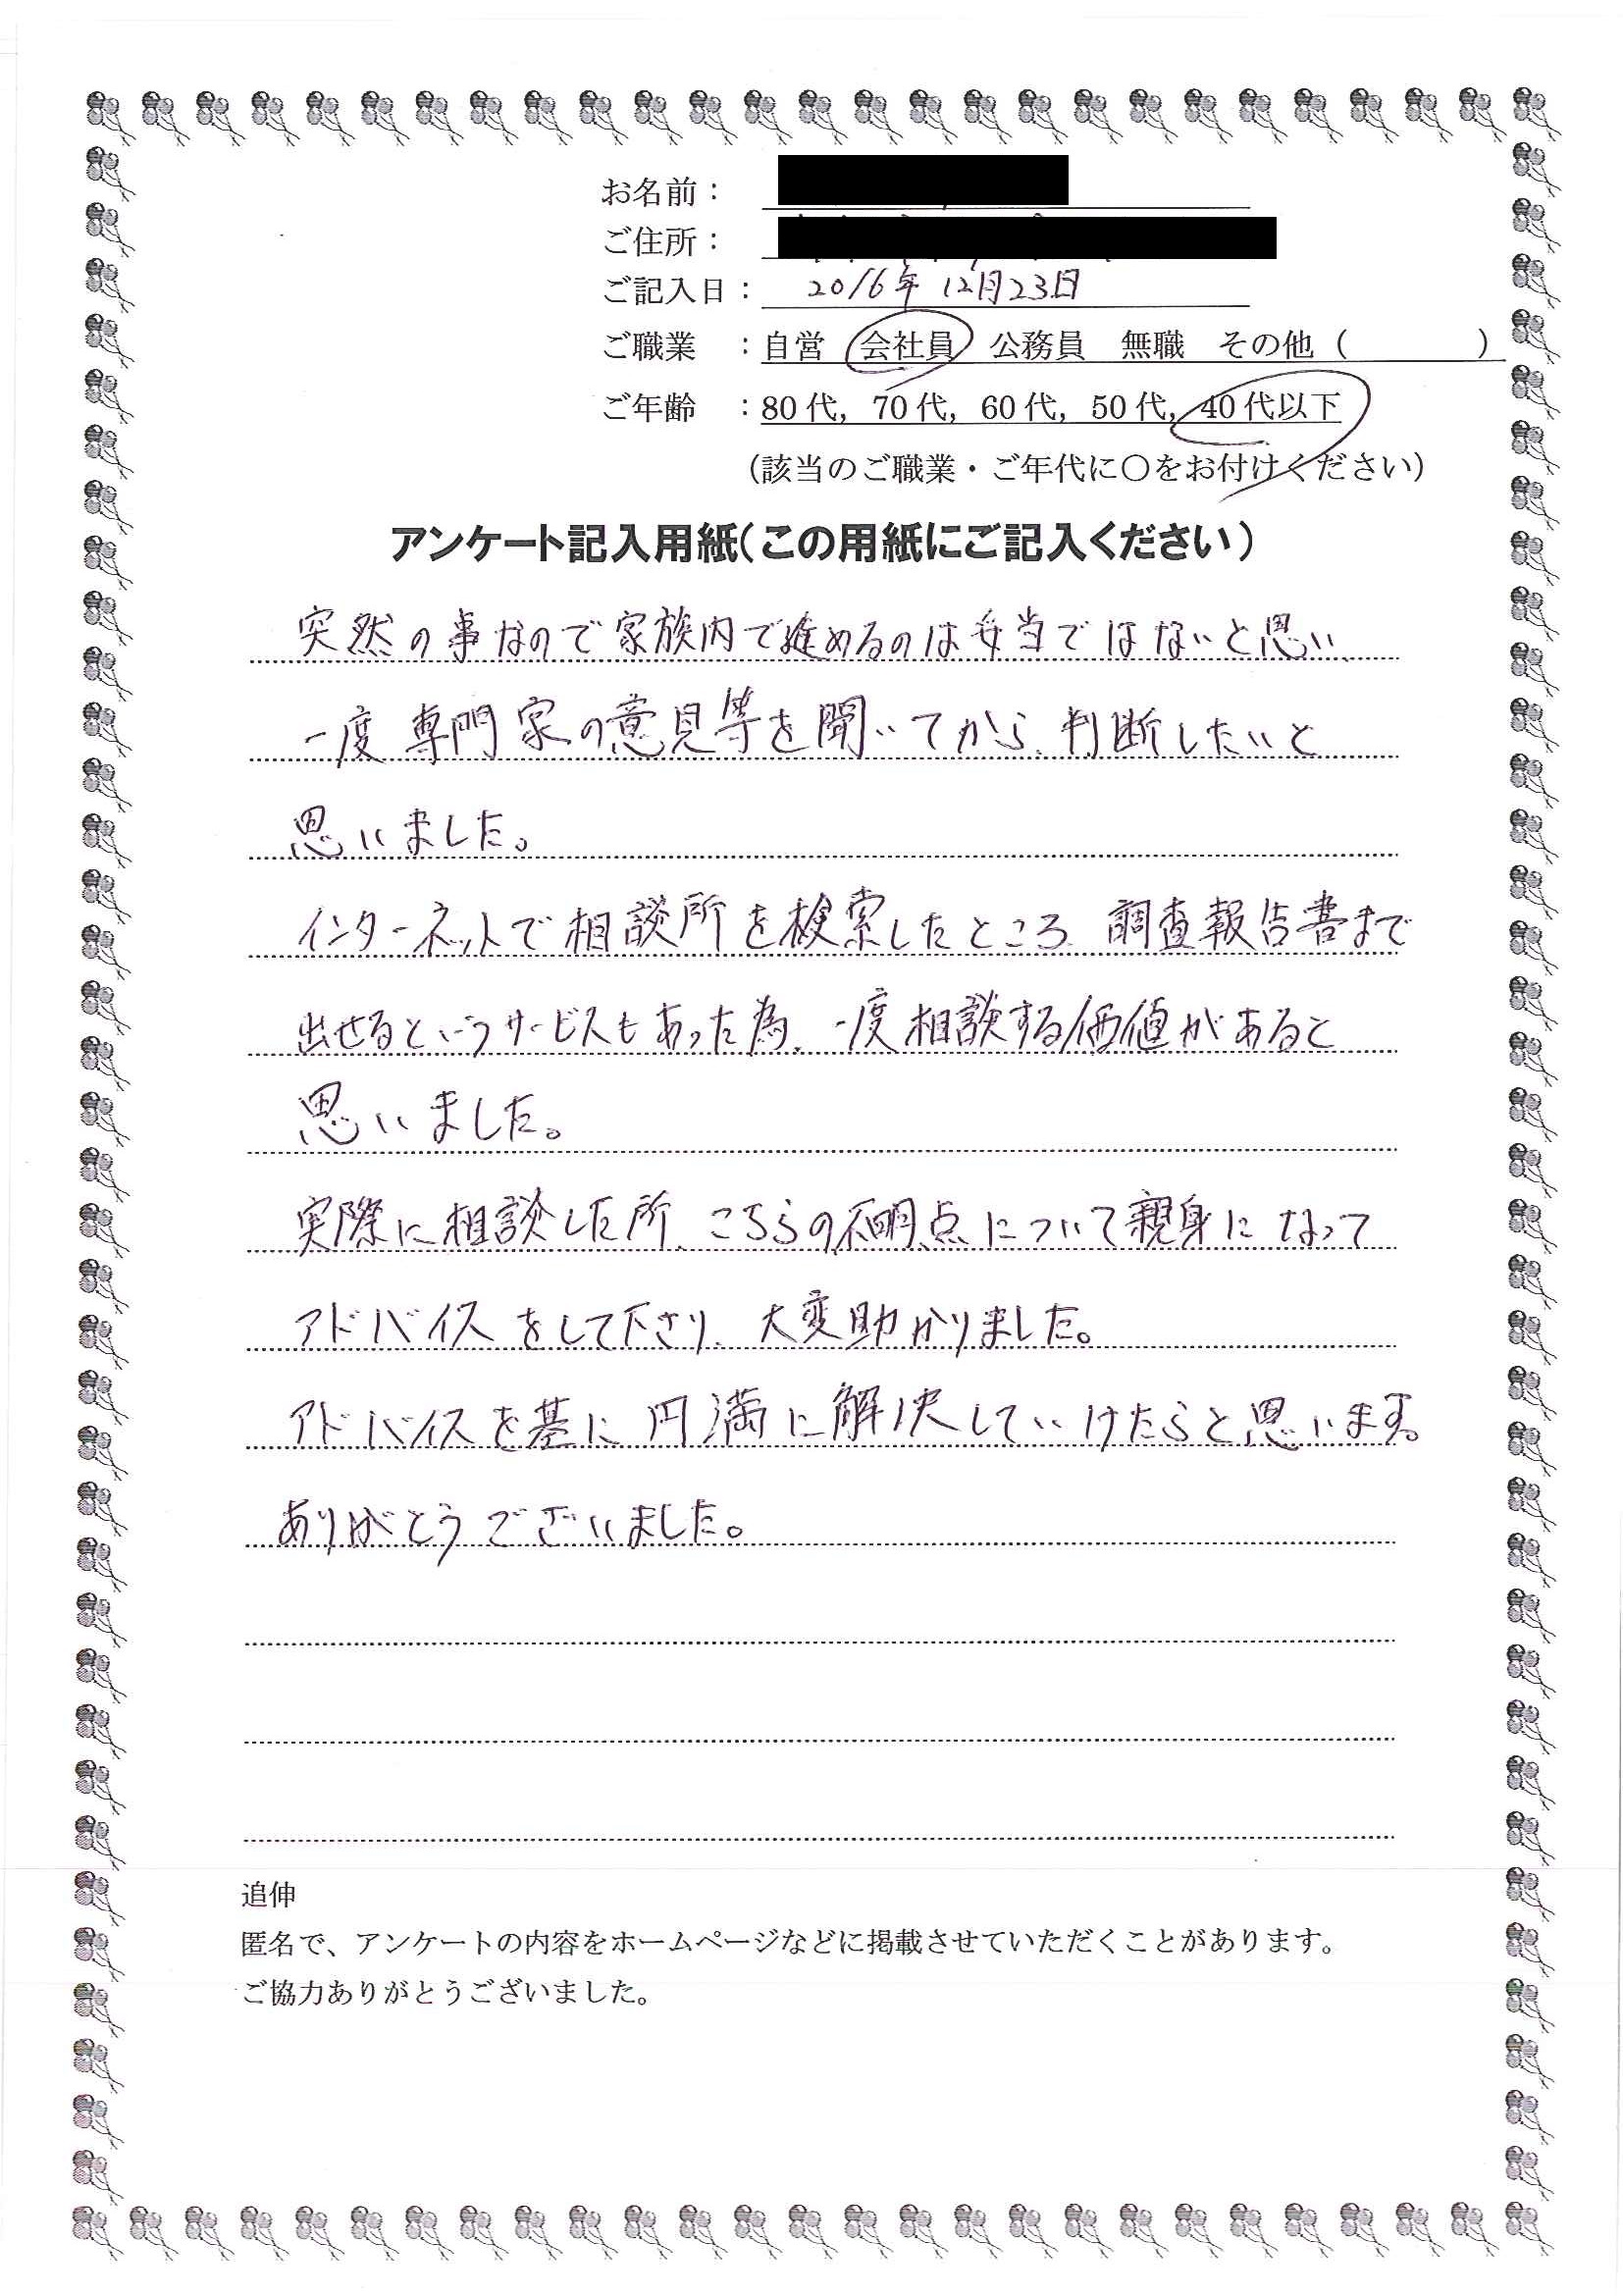 お名前：
ご住所：
ご記入日： 2016年12月23日
ご職業 ：自営 会社員 公務員 無職 その他（ ）
ご年齢 ：80代，70代，60代，50代，40代以下
（該当のご職業・ご年代に〇をお付けください）
アンケート記入用紙（この用紙にご記入ください）
突然の事なので家族内で進めるのは妥当ではないと思い、
一度専門家の意見等を聞いてから、判断したいと
思いました。
インターネットで相談所を検索したところ、調査報告書まで
出せるというサービスもあった為、一度相談する価値があると
思いました。
実際に相談した所、こちらの不明点について親身になって
アドバイスをして下さり、大変助かりました。
アドバイスを基に円満に解決していけたらと思います。
ありがとうございました。
追伸
匿名で、アンケートの内容をホームページなどに掲載させていただくことがあります。
ご協力ありがとうございました。